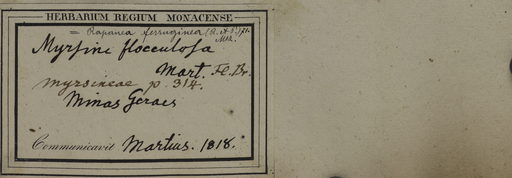 HERBARIUM REGIUM MONACENSE.
= Rapanea ferruginea (R. et P.)
Mez.
Myrsine flocculosa
Mart. Fl. Br.
myrsineae p. 314.
Minas Geraes
Communicavit Martius. 1818.